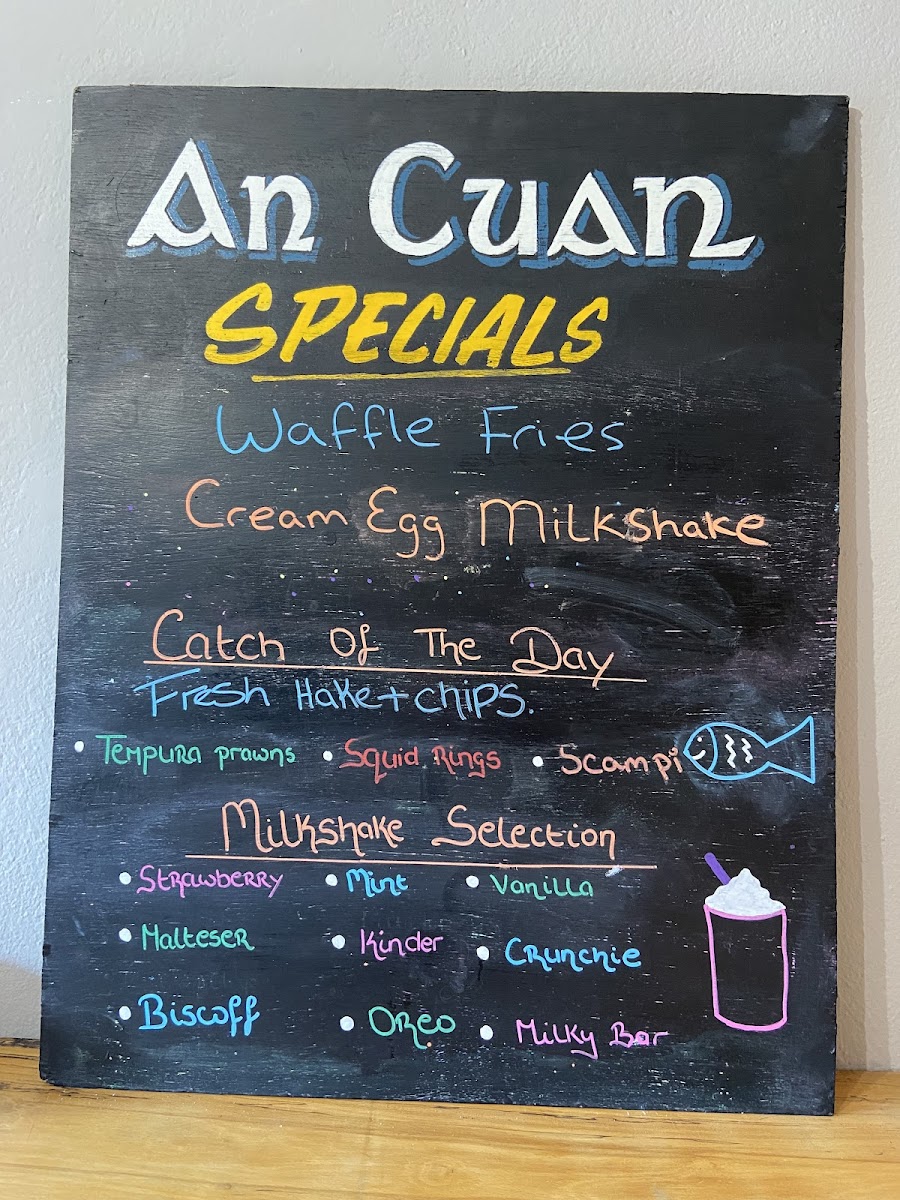 An Cuan
SPECIALS
Waffle Fries
Cream Egg Milkshake
Catch Of The Day
Fresh Hake + chips.
• Tempura prawns • Squid Rings • Scampi
Milkshake Selection
• Strawberry • Mint • Vanilla
• Malteser • Kinder • Crunchie
• Biscoff • Oreo • Milky Bar